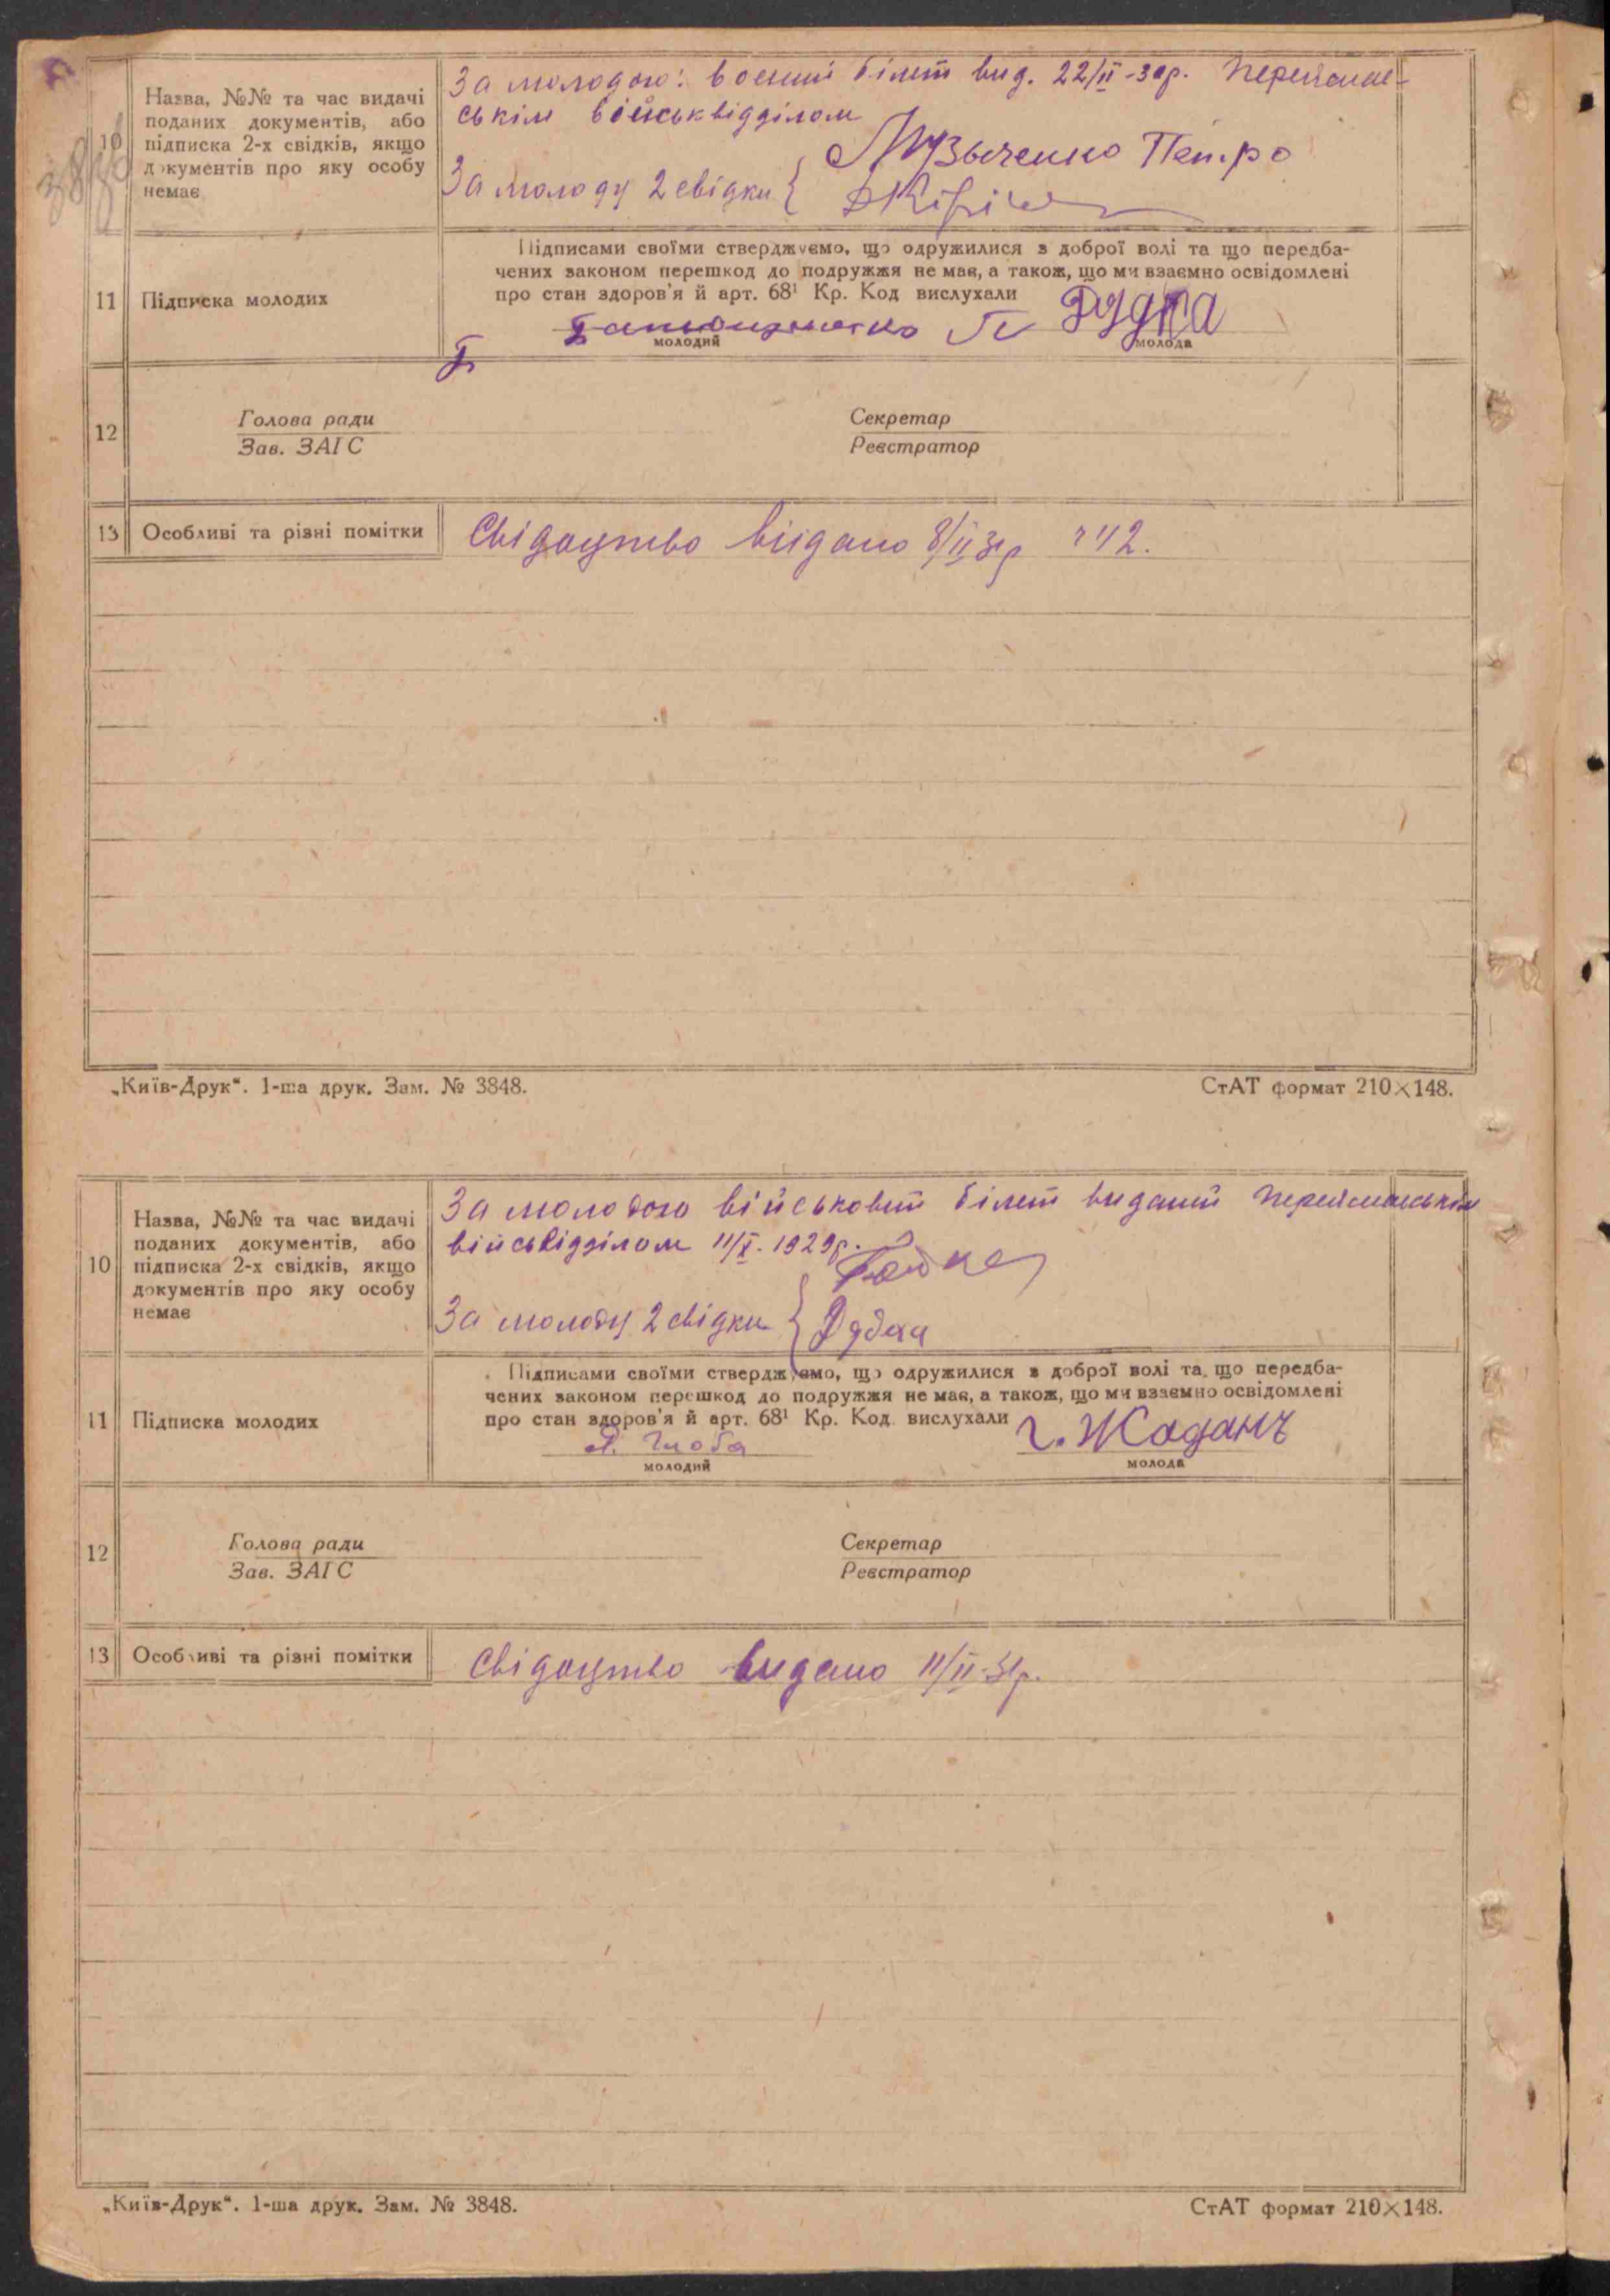 За молодого: военний білет вид. 22/II-30р. Переяслав-
ськім військвідділом
10 Назва, №№ та час видачі
поданих документів, або
підписка 2-х свідків, якщо
документів про яку особу
немає
За молоду 2 свідки { Музыченко Петро
Підписами своїми стверджуємо, що одружилися з доброї волі та що передба-
чених законом перешкод до подружжя не має, а також, що ми взаємно освідомлені
про стан здоров'я й арт. 68¹ Кр. Код вислухали
11 Підписка молодих
П Рудка
молодий молода
12 Голова ради Секретар
Зав. ЗАГС Реєстратор
13 Особливі та різні помітки Свідоцтво видано 8/II 31р ч 42.
„Київ-Друк“. 1-ша друк. Зам. № 3848. СтАТ формат 210×148.
За молодого військовий білет виданий Переяславськім
війсьвідділом 11/X-1929р.
10 Назва, №№ та час видачі
поданих документів, або
підписка 2-х свідків, якщо
документів про яку особу
немає
За молоду 2 свідки {
Підписами своїми стверджуємо, що одружилися з доброї волі та що передба-
чених законом перешкод до подружжя не має, а також, що ми взаємно освідомлені
про стан здоров'я й арт. 68¹ Кр. Код вислухали
11 Підписка молодих
Глоба Г. Жаданъ
молодий молода
12 Голова ради Секретар
Зав. ЗАГС Реєстратор
13 Особливі та різні помітки Свідоцтво видано 11/II-31р.
„Київ-Друк“. 1-ша друк. Зам. № 3848. СтАТ формат 210×148.